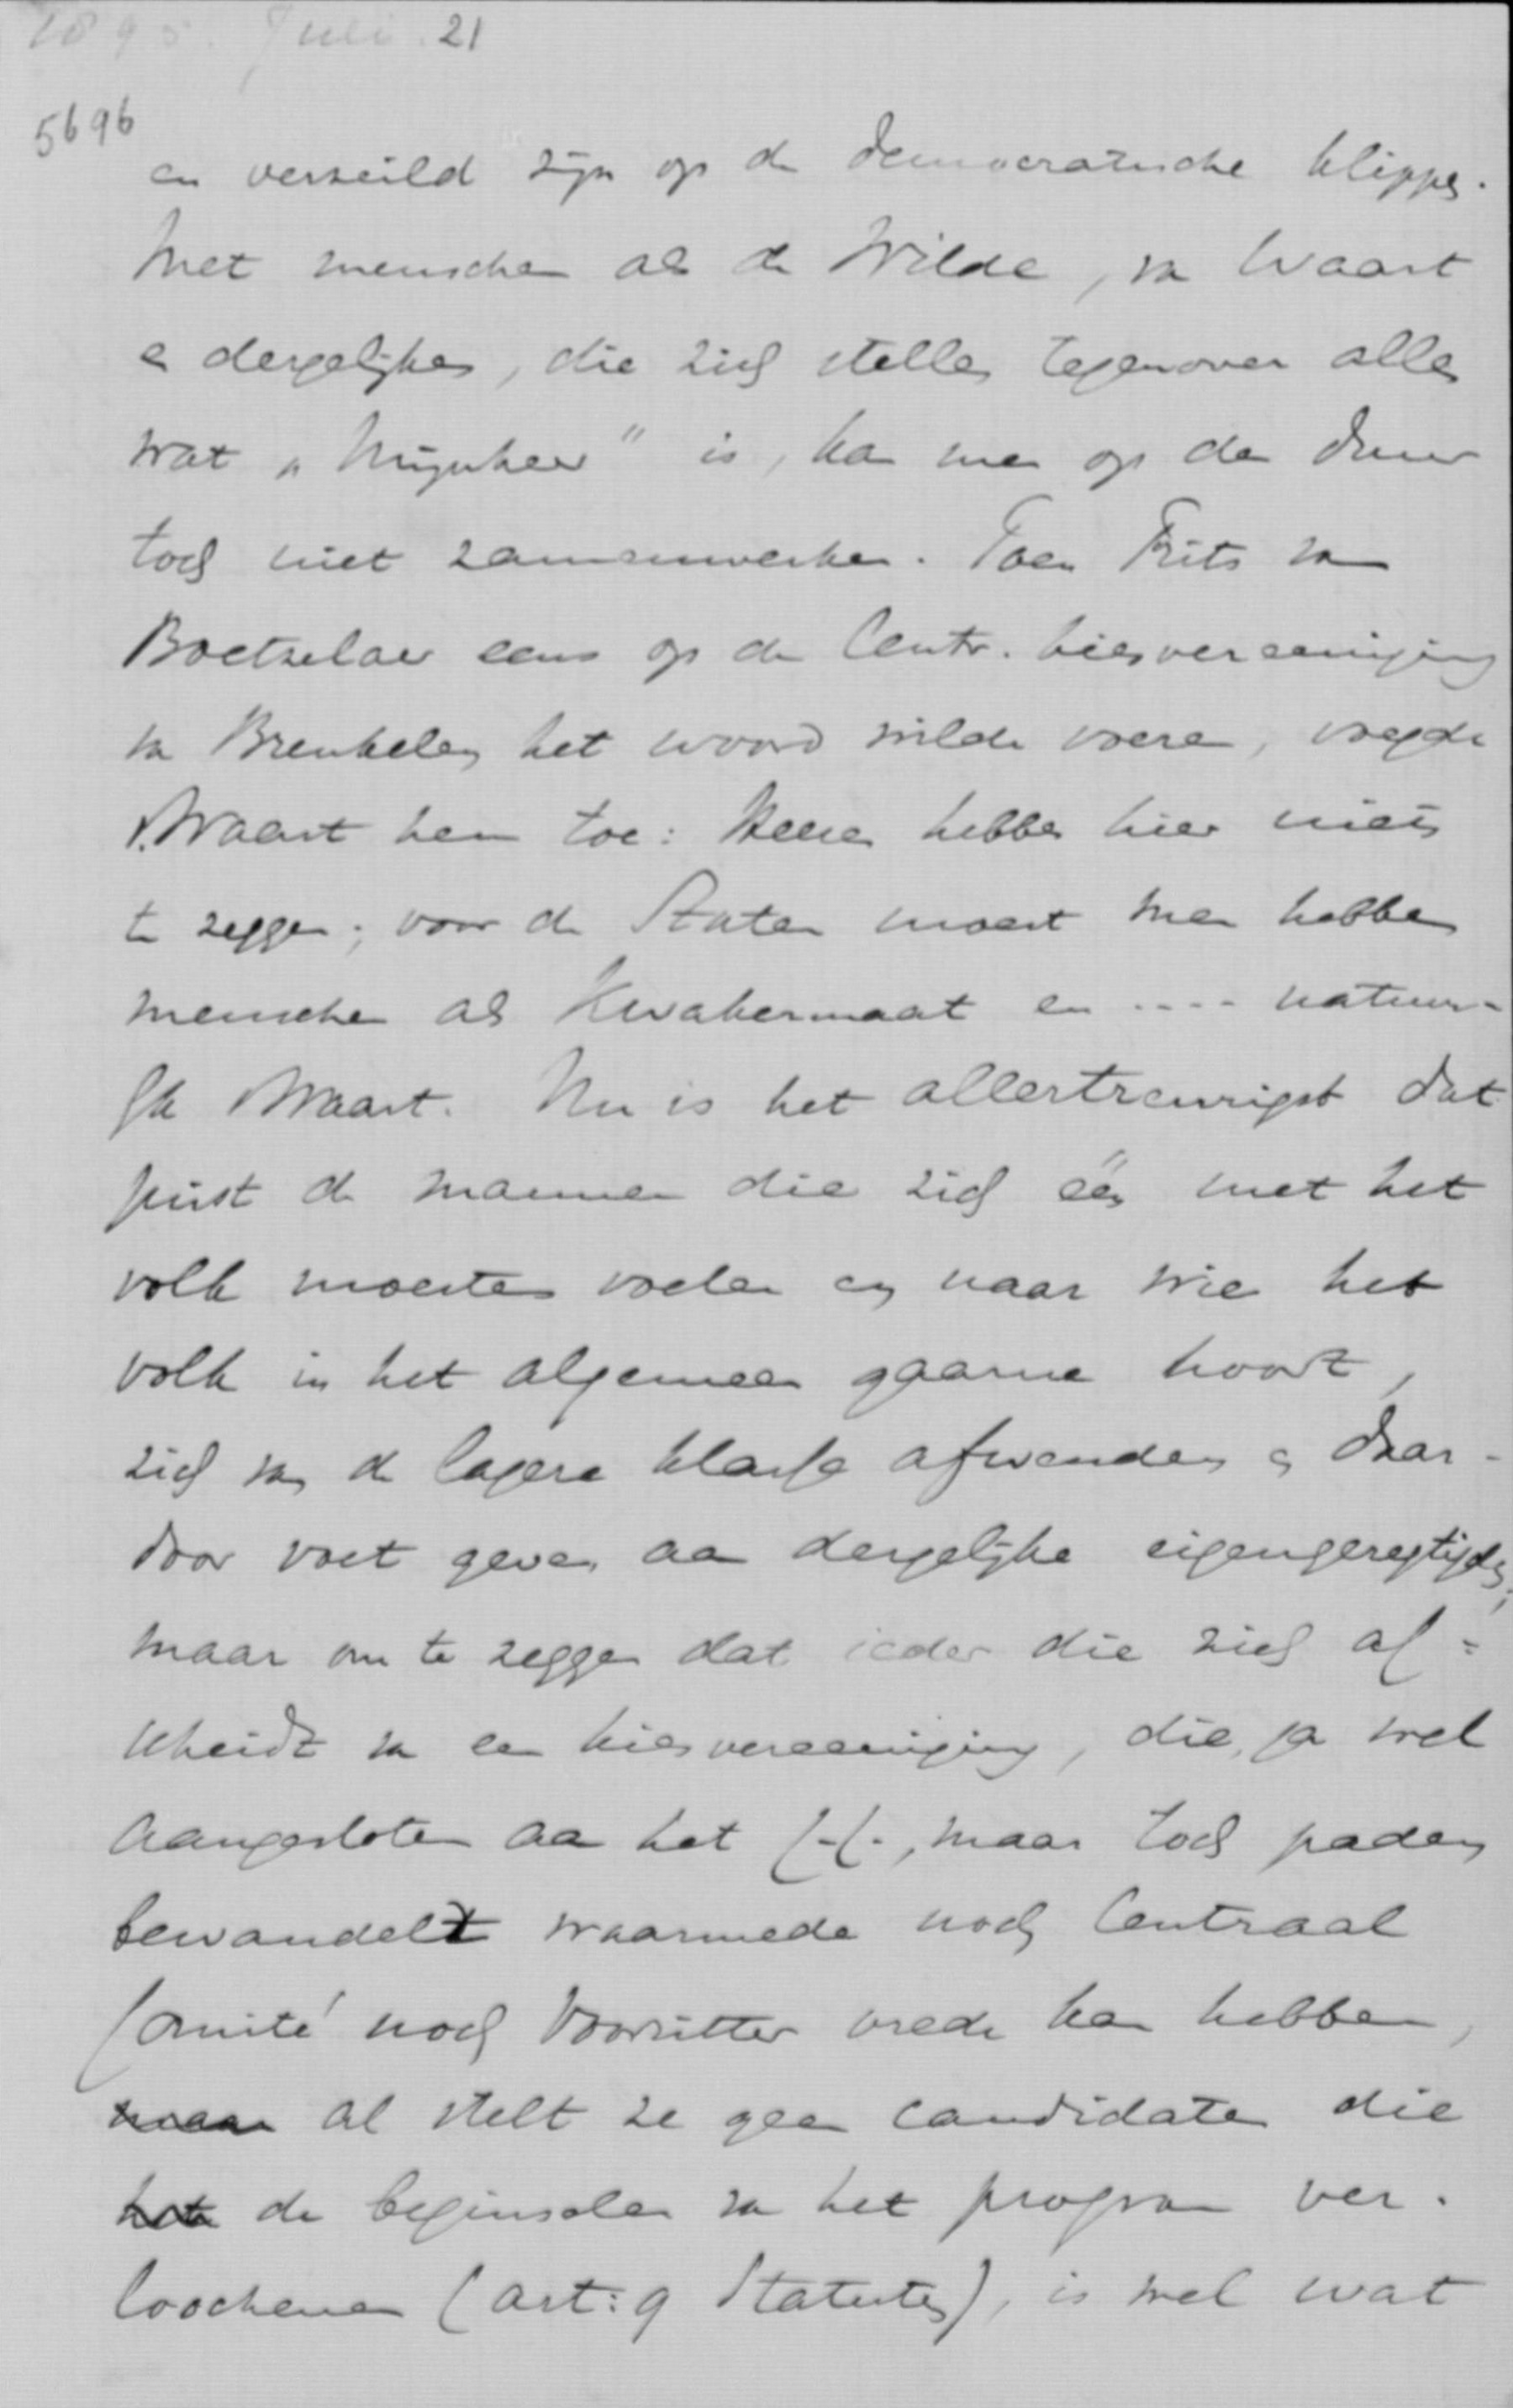 1895. Juli. 21
5696
en verzeild zijn op de democratische klippen.
Met menschen als de Wilde, van Waart
en dergelijken, die zich stellen tegenover alles
wat „Mijnheer" is, kan men op den duur
toch niet zamenwerken. Toen Frits van
Boetzelaer eens op de Centr. kiesvereeniging
van Breukelen het woord wilde voeren, voegde
v. Waart hem toe: Heeren hebben hier niets
te zeggen; voor de Staten moest men hebben
menschen als Kwakernaat en .... natuur-
lijk v Waart. Nu is het allertreurigst dat
juist de mannen die zich één met het
volk moesten voelen en naar wie het
volk in het algemeen gaarne hoort,
zich van de lagere klasse afwenden en daar-
door voet geven aan dergelijke eigengeregtigden;
maar om te zeggen dat ieder die zich af=
scheidt van een kiesvereeniging, die, ja wel
aangesloten aan het C.C., maar toch paden
bewandelt waarmede noch Centraal
Comité noch Voorzitter vrede kan hebben,
maar al stelt ze geen candidaten die
de beginselen van het program ver-
loochenen (art: 9 Statuten), is wel wat